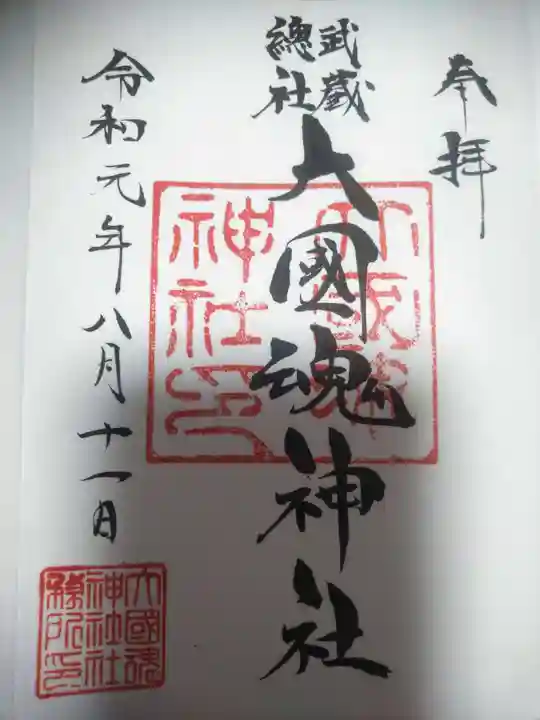 奉拝
武蔵
總社
大國魂神社
大國魂
神社印
令和元年八月十一日
大國魂
神社社
務所印